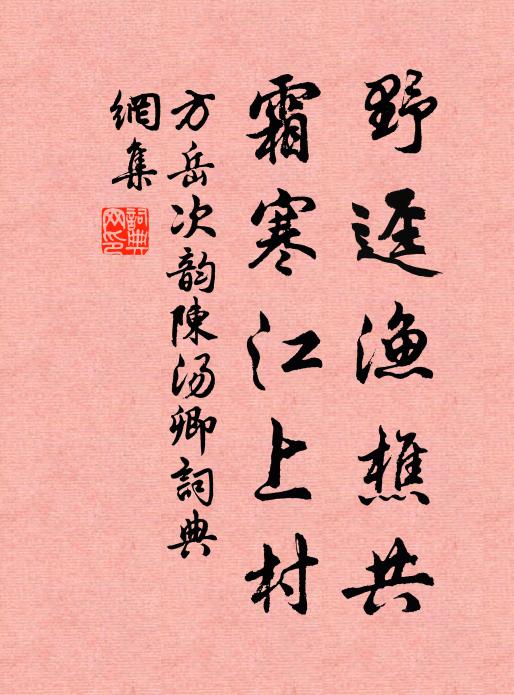 野逕漁樵共
霜寒江上村
方岳次韵陳湯卿詞典
網集
詞典
网印